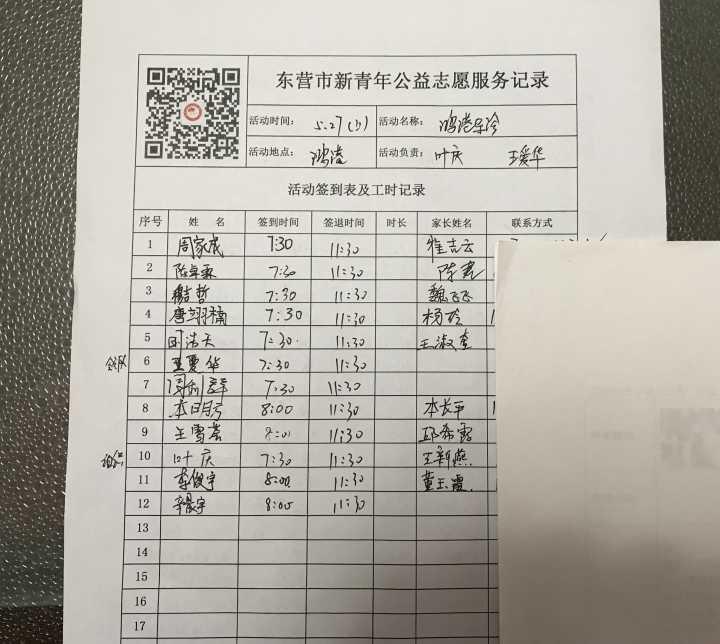 东营市新青年公益志愿服务记录
活动时间： 5.27(日) 活动名称：
活动地点： 鸿港 活动负责： 叶庆 王爱华
活动签到表及工时记录
序号 姓 名 签到时间 签退时间 时长 家长姓名 联系方式
1 周家成 7:30 11:30 崔吉云
2 7:30 11:30 陈
3 魏哲 7:30 11:30 魏飞飞
4 唐翊楠 7:30 11:30 杨玲
5 田浩天 7:30. 11:30 王淑奎
6 王爱华 7:30 11:30
7 周利群 7:30 11:30
8 8:00 11:30 本长平
9 王雪 8:00 11:30 邱希霞
10 叶庆 7:30 11:30 王新燕
11 李俊宇 8:00 11:30 董玉霞
12 8:00 11:30
13
14
15
16
17